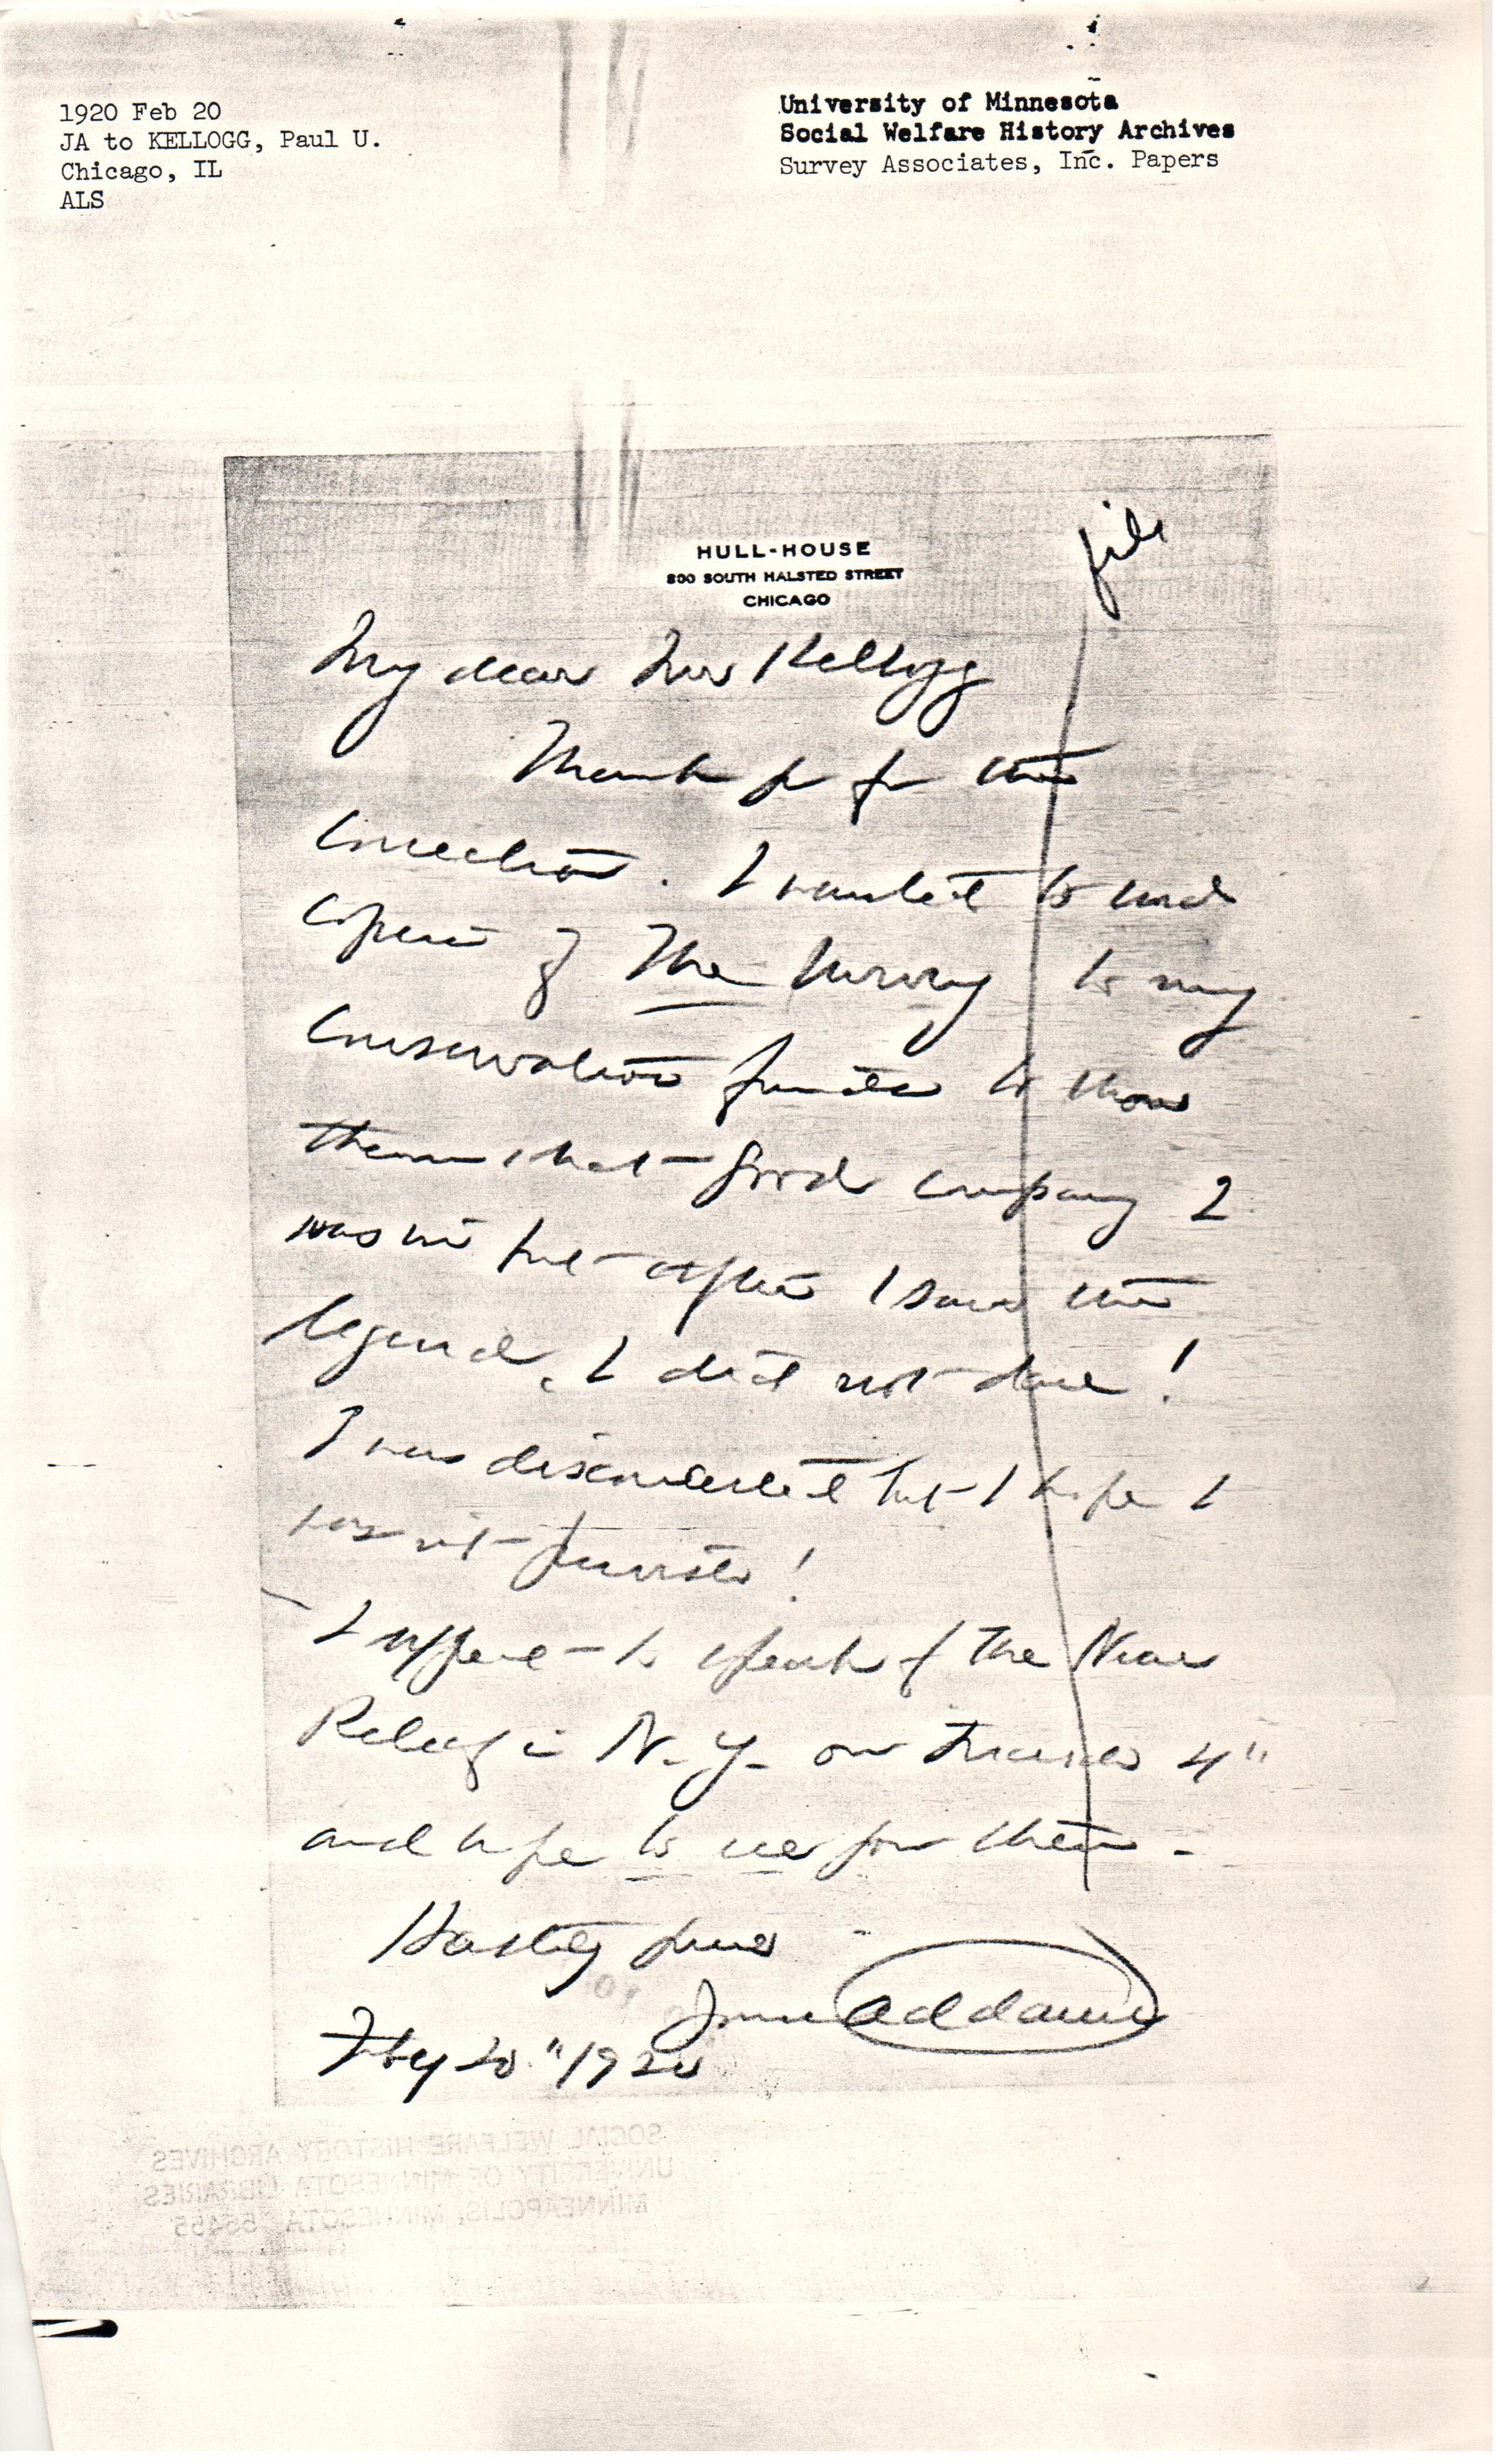 1920 Feb 20
JA to KELLOGG, Paul U.
Chicago, IL
ALS
University of Minnesota
Social Welfare History Archives
Survey Associates, Inc. Papers
file
HULL-HOUSE
800 SOUTH HALSTED STREET
CHICAGO
My dear Mr Kellogg
Thank you for the
correction. I wanted to send
copies of The Survey to my
conservative friends to show
them what good company I
was in but after I saw the
legend, I did not dare!
I was disconcerted but I hope I
was not
I expect to speak for the Near
Relief in N.Y. on March 4"
and hope to see you then -
Hastily yours
Jane Addams
Feby 20" 1920
SOCIAL WELFARE HISTORY ARCHIVES
UNIVERSITY OF MINNESOTA LIBRARIES
MINNEAPOLIS, MINNESOTA 55455